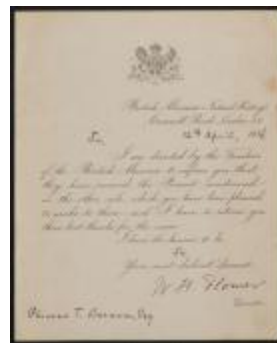 British Museum (Natural History)
Cromwell Road, London S.W.
Sir,
I am directed by the Trustees
of the British Museum to inform you that
they have received the Present mentioned
on the other side, which you have been pleased
to make to them, and I have to return you
their best thanks for the same.
I have the honour to be
Sir
Your most obedient Servant,
W. H. Flower
Director
Phineas T. Barnum, Esq